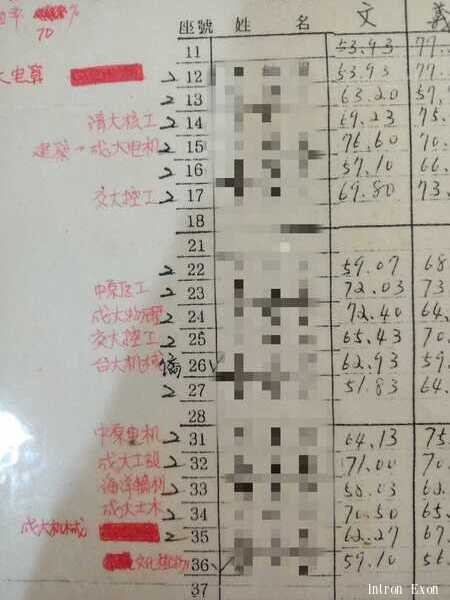 率 %
70
座號 姓 名 文 義
11 53.93 77.
大电算 2 12 53.93 77.
2 13 63.20 57.
清大核工 2 14 69.23 75.
建築→成大电机 2 15 76.60 70.
2 16 57.10 66.
交大控工 2 17 69.80 73.
18
21
2 22 59.07 68
中原医工 2 23 72.03 73
成大物理 2 24 72.40 64.
交大控工 2 25 65.43 70.
台大机械 僑 26 62.93 59.
2 27 51.83 64.
28
中原电机 2 31 64.13 75.
成大工設 2 32 71.00 70.
海洋輪机 2 33 50.03 62.
成大土木 2 34 70.50 65.
成大机械 2 35 62.27 67.
文化 36 59.10 56.
37
Intron Exon